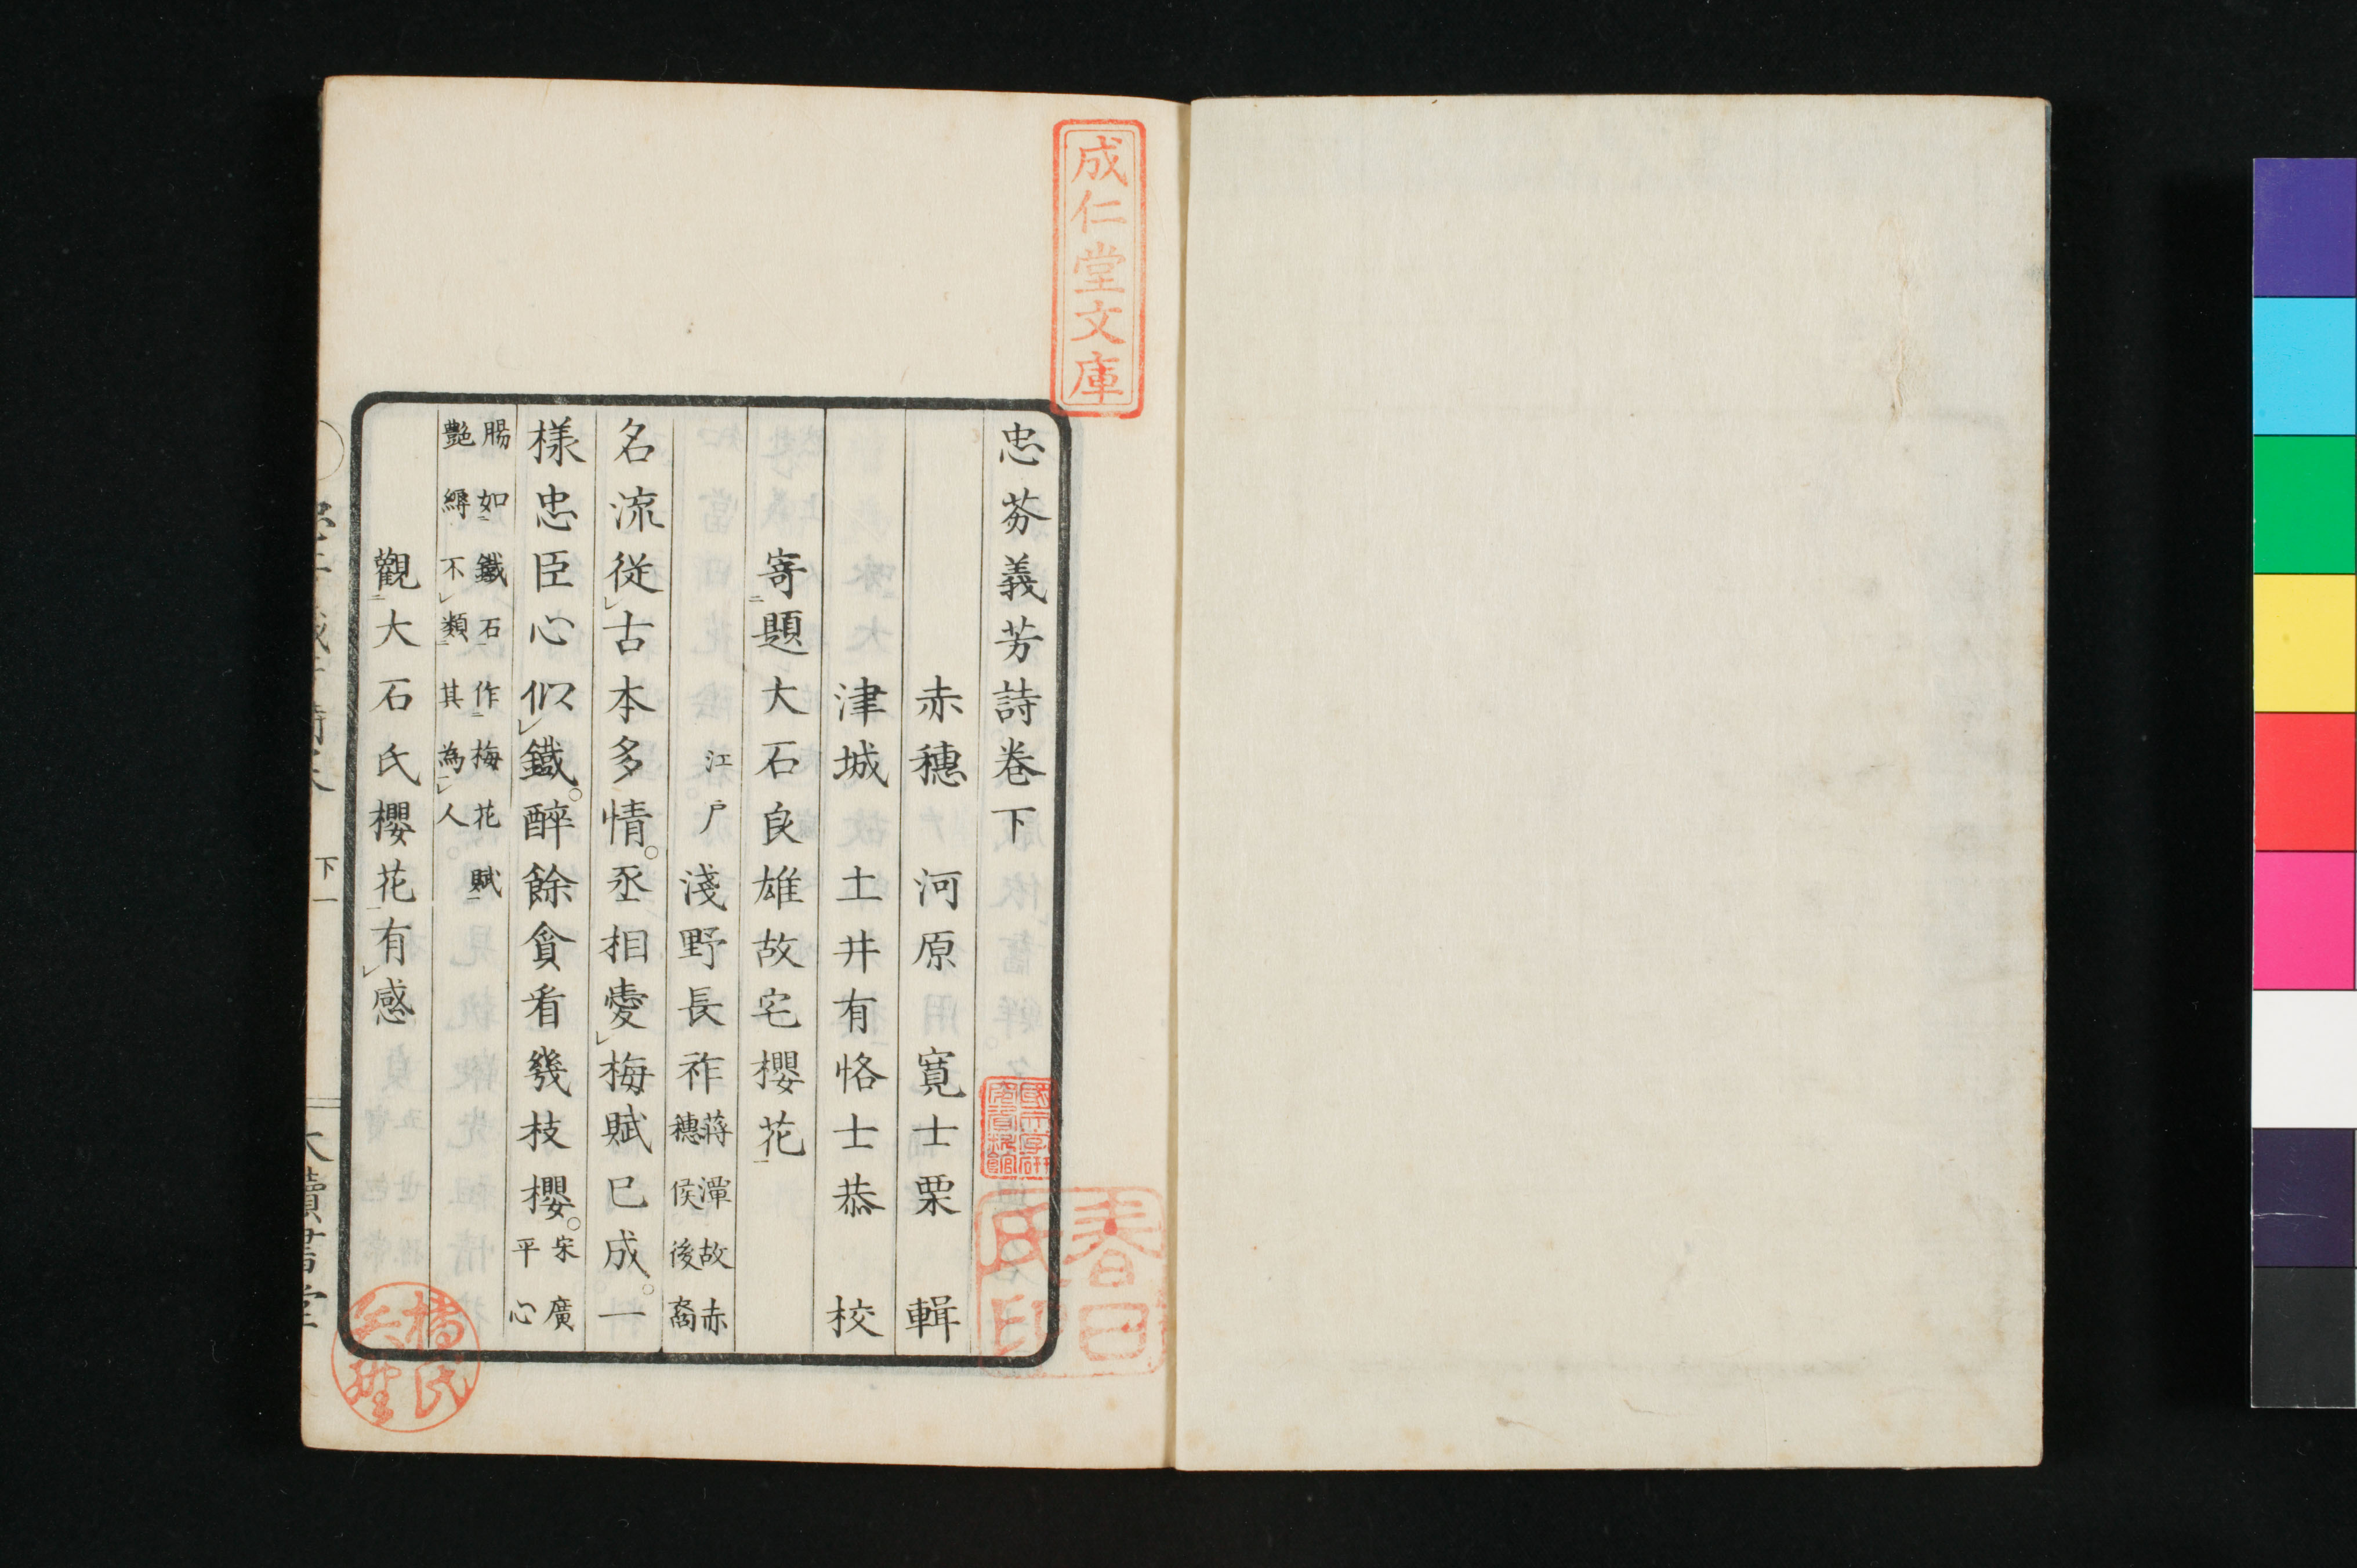 成仁堂文庫
忠芬義芳詩卷下
赤穗 河原寬士栗 輯
津城 土井有恪士恭 校
寄題大石良雄故宅櫻花
江戶 淺野長祚 蔣潭故赤
穗侯後裔
名流從古本多情。丞相愛梅賦已成。一
樣忠臣心似鐵。醉餘貪看幾枝櫻。宋廣
平心
腸如鐵石作梅花賦
艷縟不類其為人
觀大石氏櫻花有感
下一
春日
氏印